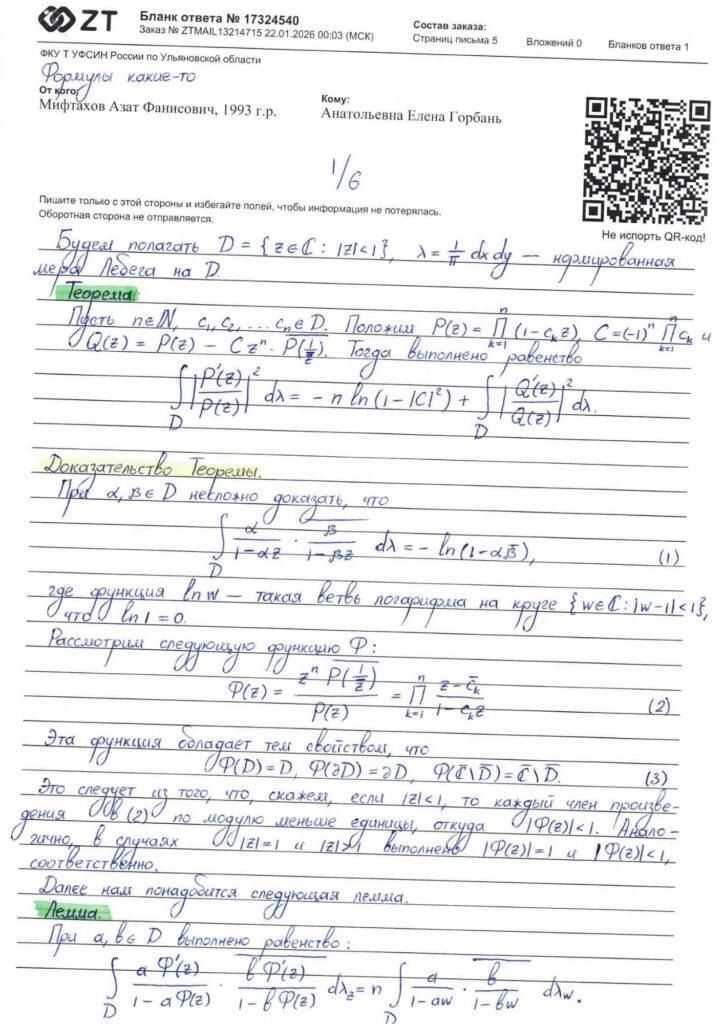 ZT
Бланк ответа № 17324540
Заказ № ZTMAIL13214715 22.01.2026 00:03 (МСК)
Состав заказа:
Страниц письма 5 Вложений 0 Бланков ответа 1
ФКУ Т УФСИН России по Ульяновской области
Формулы какие-то
От кого:
Мифтахов Азат Фанисович, 1993 г.р.
Кому:
Анатольевна Елена Горбань
1/6
Пишите только с этой стороны и избегайте полей, чтобы информация не потерялась.
Оборотная сторона не отправляется.
Не испорть QR-код!
Будем полагать D = {z ∈ ℂ : |z|<1}, λ = 1/π dx dy — нормированная
мера Лебега на D.
Теорема.
Пусть n∈ℕ, c₁, c₂, ... cₙ ∈ D. Положим P(z) = ∏ₖ₌₁ⁿ (1-cₖz), C=(-1)ⁿ ∏ₖ₌₁ⁿ cₖ и
Q(z) = P(z) - C zⁿ · \overline{P(1/\bar{z})}. Тогда выполнено равенство
∫_D |P'(z)/P(z)|² dλ = -n ln(1-|C|²) + ∫_D |Q'(z)/Q(z)|² dλ.
Доказательство Теоремы.
При α, β ∈ D несложно доказать, что
∫_D α/(1-αz) · \overline{β/(1-βz)} dλ = - ln(1-α\bar{β}), (1)
где функция ln w — такая ветвь логарифма на круге {w∈ℂ: |w-1|<1},
что ln 1 = 0.
Рассмотрим следующую функцию Φ:
Φ(z) = zⁿ \overline{P(1/\bar{z})} / P(z) = ∏ₖ₌₁ⁿ (z-\bar{c}ₖ)/(1-cₖz) (2)
Эта функция обладает тем свойством, что
Φ(D) = D, Φ(∂D) = ∂D, Φ(\bar{ℂ}\\bar{D}) = \bar{ℂ}\\bar{D}. (3)
Это следует из того, что, скажем, если |z|<1, то каждый член произве-
дения в (2) по модулю меньше единицы, откуда |Φ(z)|<1. Анало-
гично, в случаях |z|=1 и |z|>1 выполнено |Φ(z)|=1 и |Φ(z)|<1,
соответственно.
Далее нам понадобится следующая лемма.
Лемма.
При a, b ∈ D выполнено равенство:
∫_D aΦ'(z)/(1-aΦ(z)) · \overline{bΦ'(z)/(1-bΦ(z))} dλ_z = n ∫_D a/(1-aw) · \overline{b/(1-bw)} dλ_w.